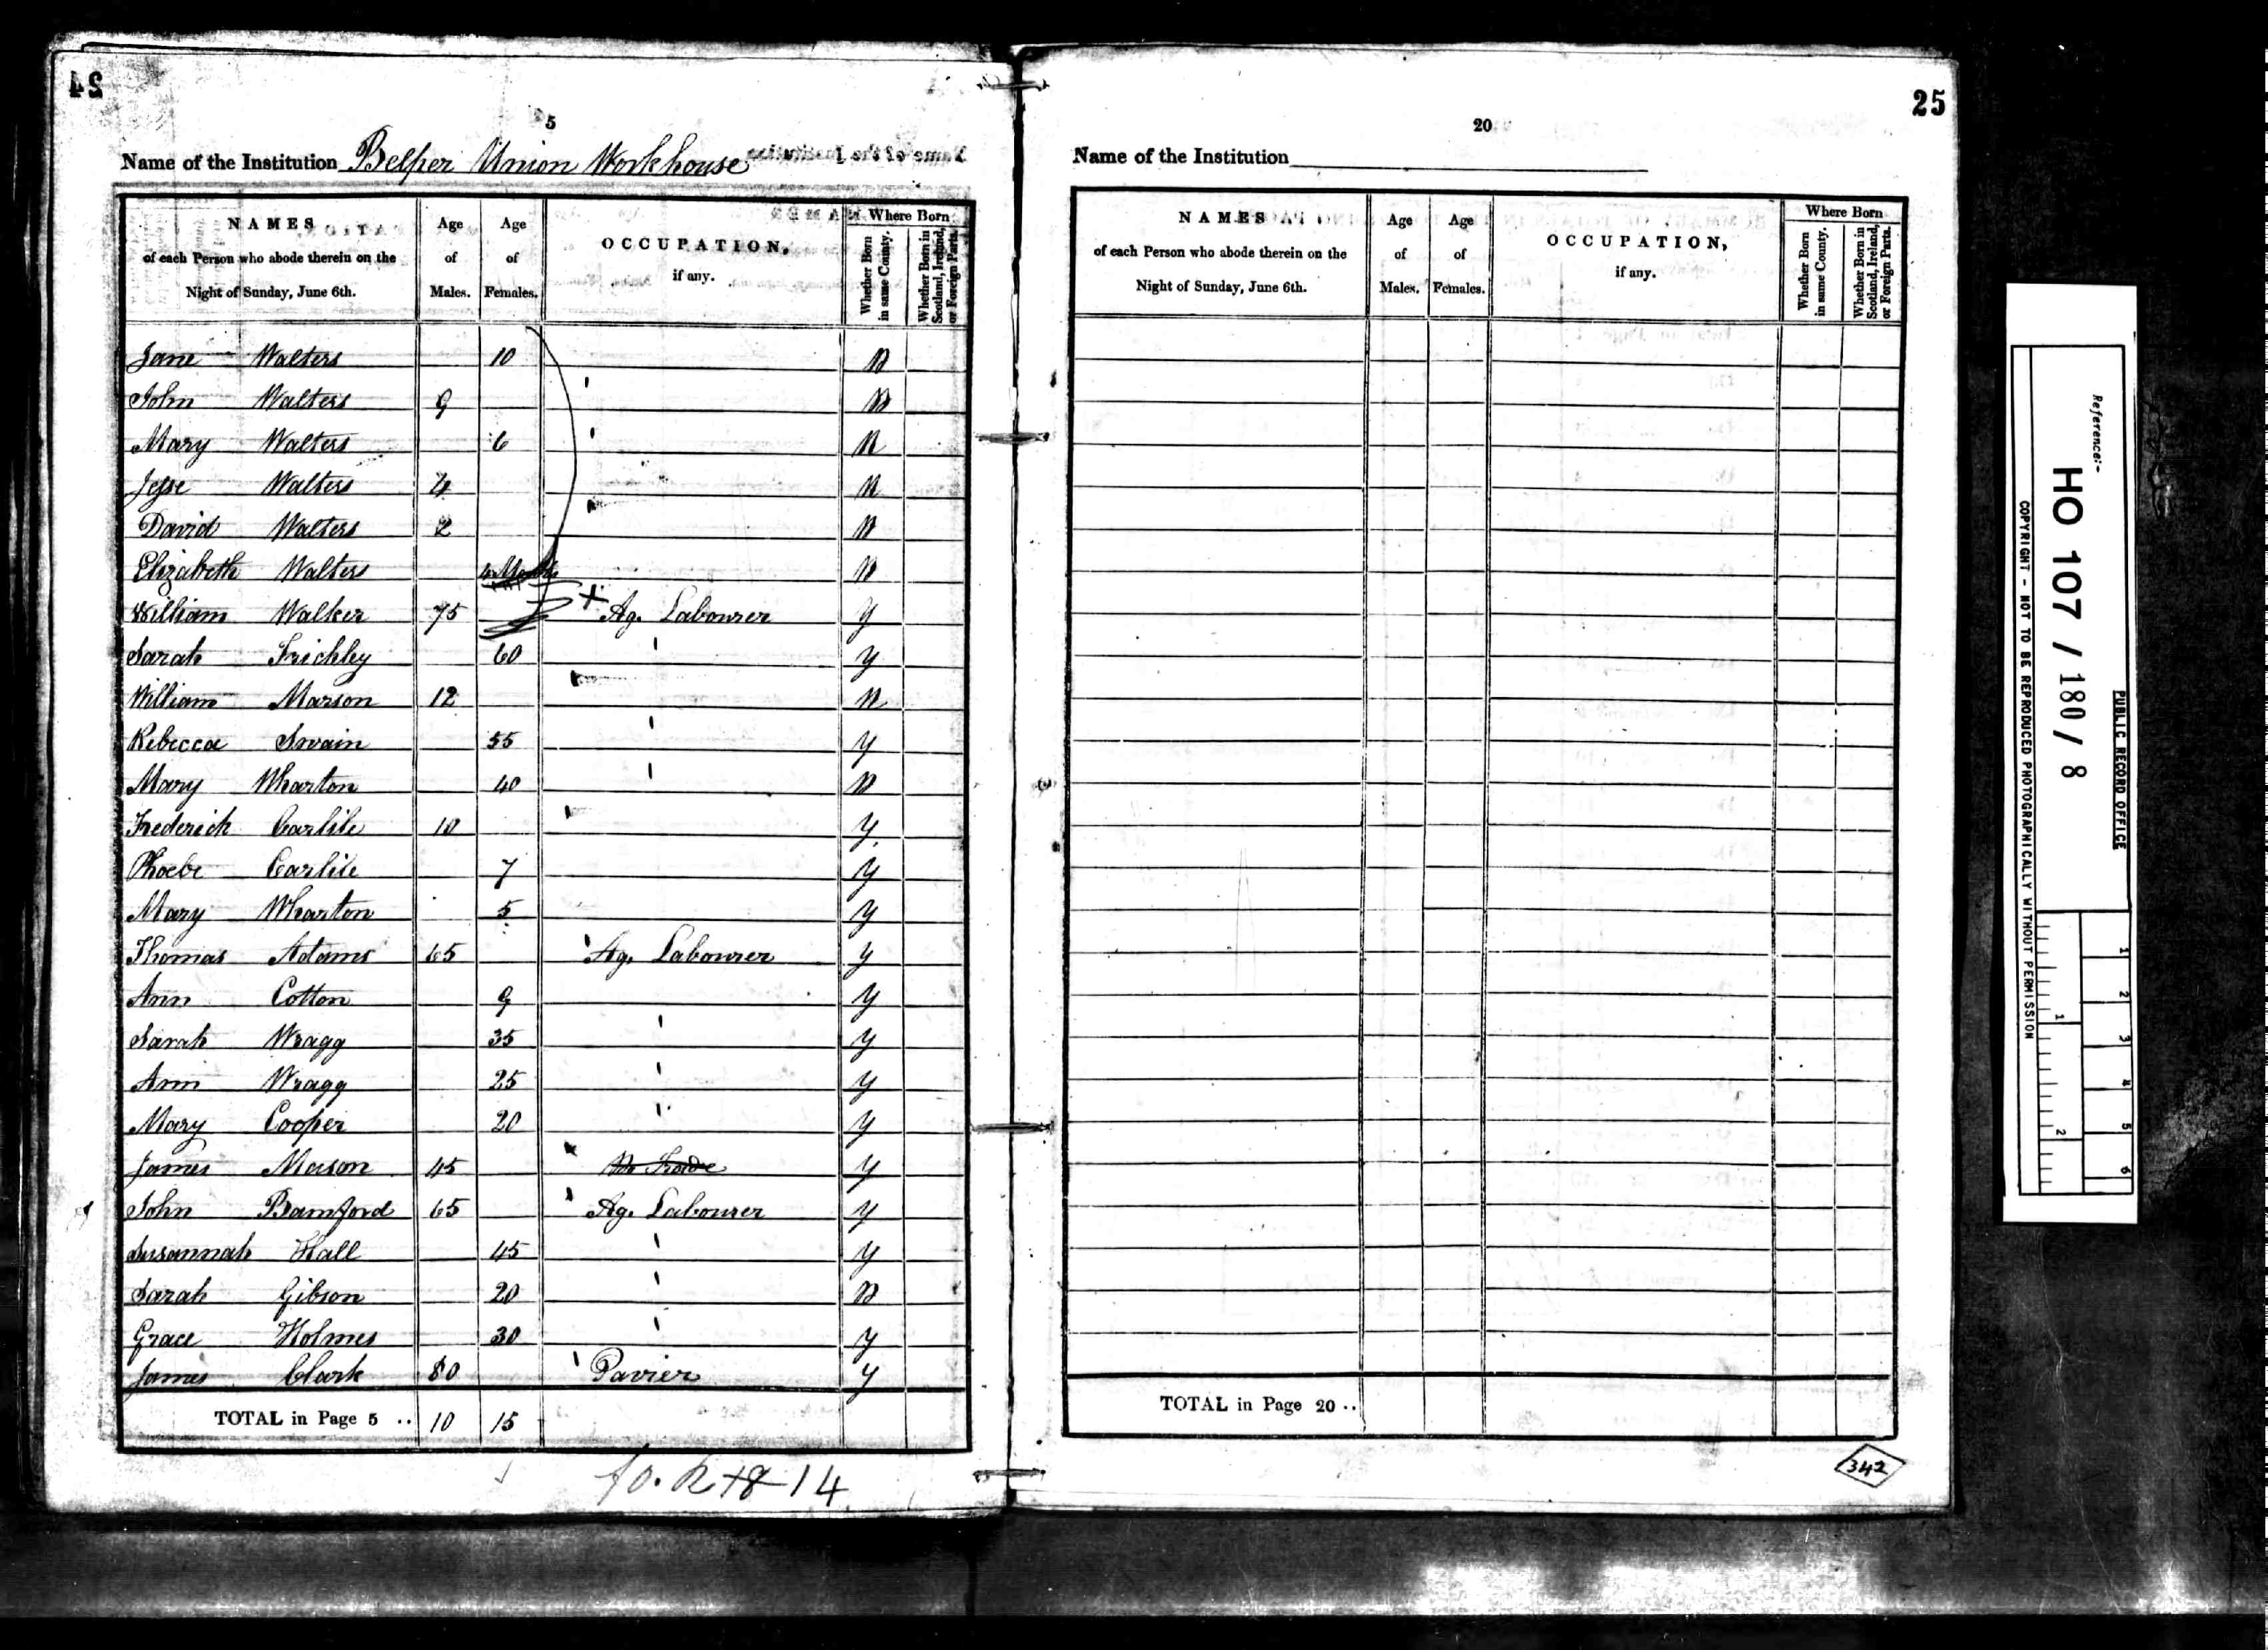 24
5
Name of the Institution Belper Union Workhouse
NAMES of each Person who abode therein on the Night of Sunday, June 6th. Age of Males. Age of Females. OCCUPATION, if any. Where Born Whether Born in same County. Whether Born in Scotland, Ireland, or Foreign Parts.
Jane Walters 10 N
John Walters 9 N
Mary Walters 6 N
Jesse Walters 4 N
David Walters 2 N
Elizabeth Walters 4 Months N
William Walker 75 Ag. Labourer y
Sarah 60 y
William Marson 12 N
Rebecca Swain 55 y
Mary Wharton 40 N
Frederick Carlile 10 y
Phoebe Carlile 7 y
Mary Wharton 5 y
Thomas Adams 65 Ag. Labourer y
Ann Cotton 9 y
Sarah Wragg 35 y
Ann Wragg 25 y
Mary Cooper 20 y
James Mason 45 No Trade y
John Bamford 65 Ag. Labourer y
Susannah Hall 45 y
Sarah Gibson 20 N
Grace Holmes 30 y
James Clark 80 Pavier y
TOTAL in Page 5 .. 10 15
14
25
20
Name of the Institution
NAMES of each Person who abode therein on the Night of Sunday, June 6th. Age of Males. Age of Females. OCCUPATION, if any. Where Born Whether Born in same County. Whether Born in Scotland, Ireland, or Foreign Parts.
TOTAL in Page 20 ..
342
Reference:-
HO 107 / 180 / 8
PUBLIC RECORD OFFICE
COPYRIGHT - NOT TO BE REPRODUCED PHOTOGRAPHICALLY WITHOUT PERMISSION
1 2 3 4 5 6
1 2